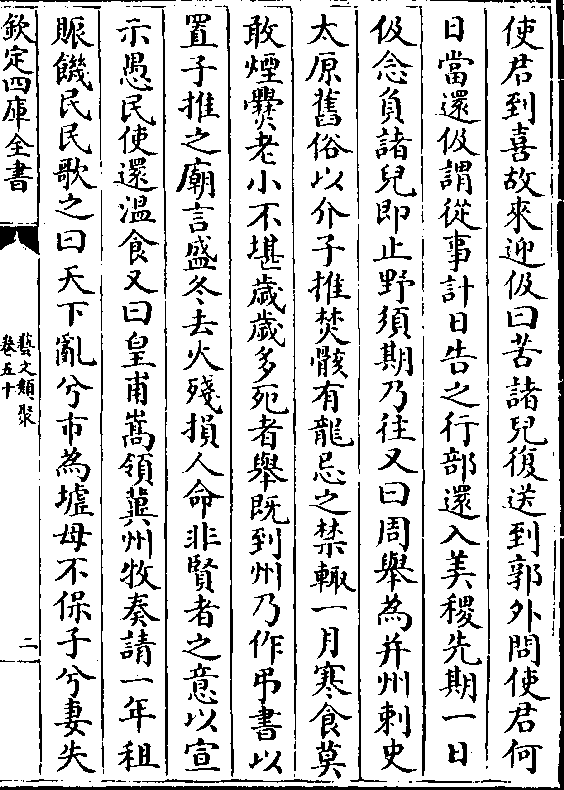 使君到喜故來迎伋曰苦諸兒復送到郭外問使君何
日當還伋謂從事計日告之行部還入美稷先期一日
伋念負諸兒即止野須期乃往又曰周舉為并州刺史
太原舊俗以介子推焚骸有龍忌之禁輙一月寒食莫
敢煙爨老小不堪歳歳多死者舉既到州乃作弔書以
置子推之廟言盛冬去火殘損人命非賢者之意以宣
示愚民使還溫食又曰皇甫嵩領冀州牧奏請一年租
賑饑民民歌之曰天下亂兮市為墟母不保子兮妻失
欽定四庫全書
藝文類聚
卷五十
二